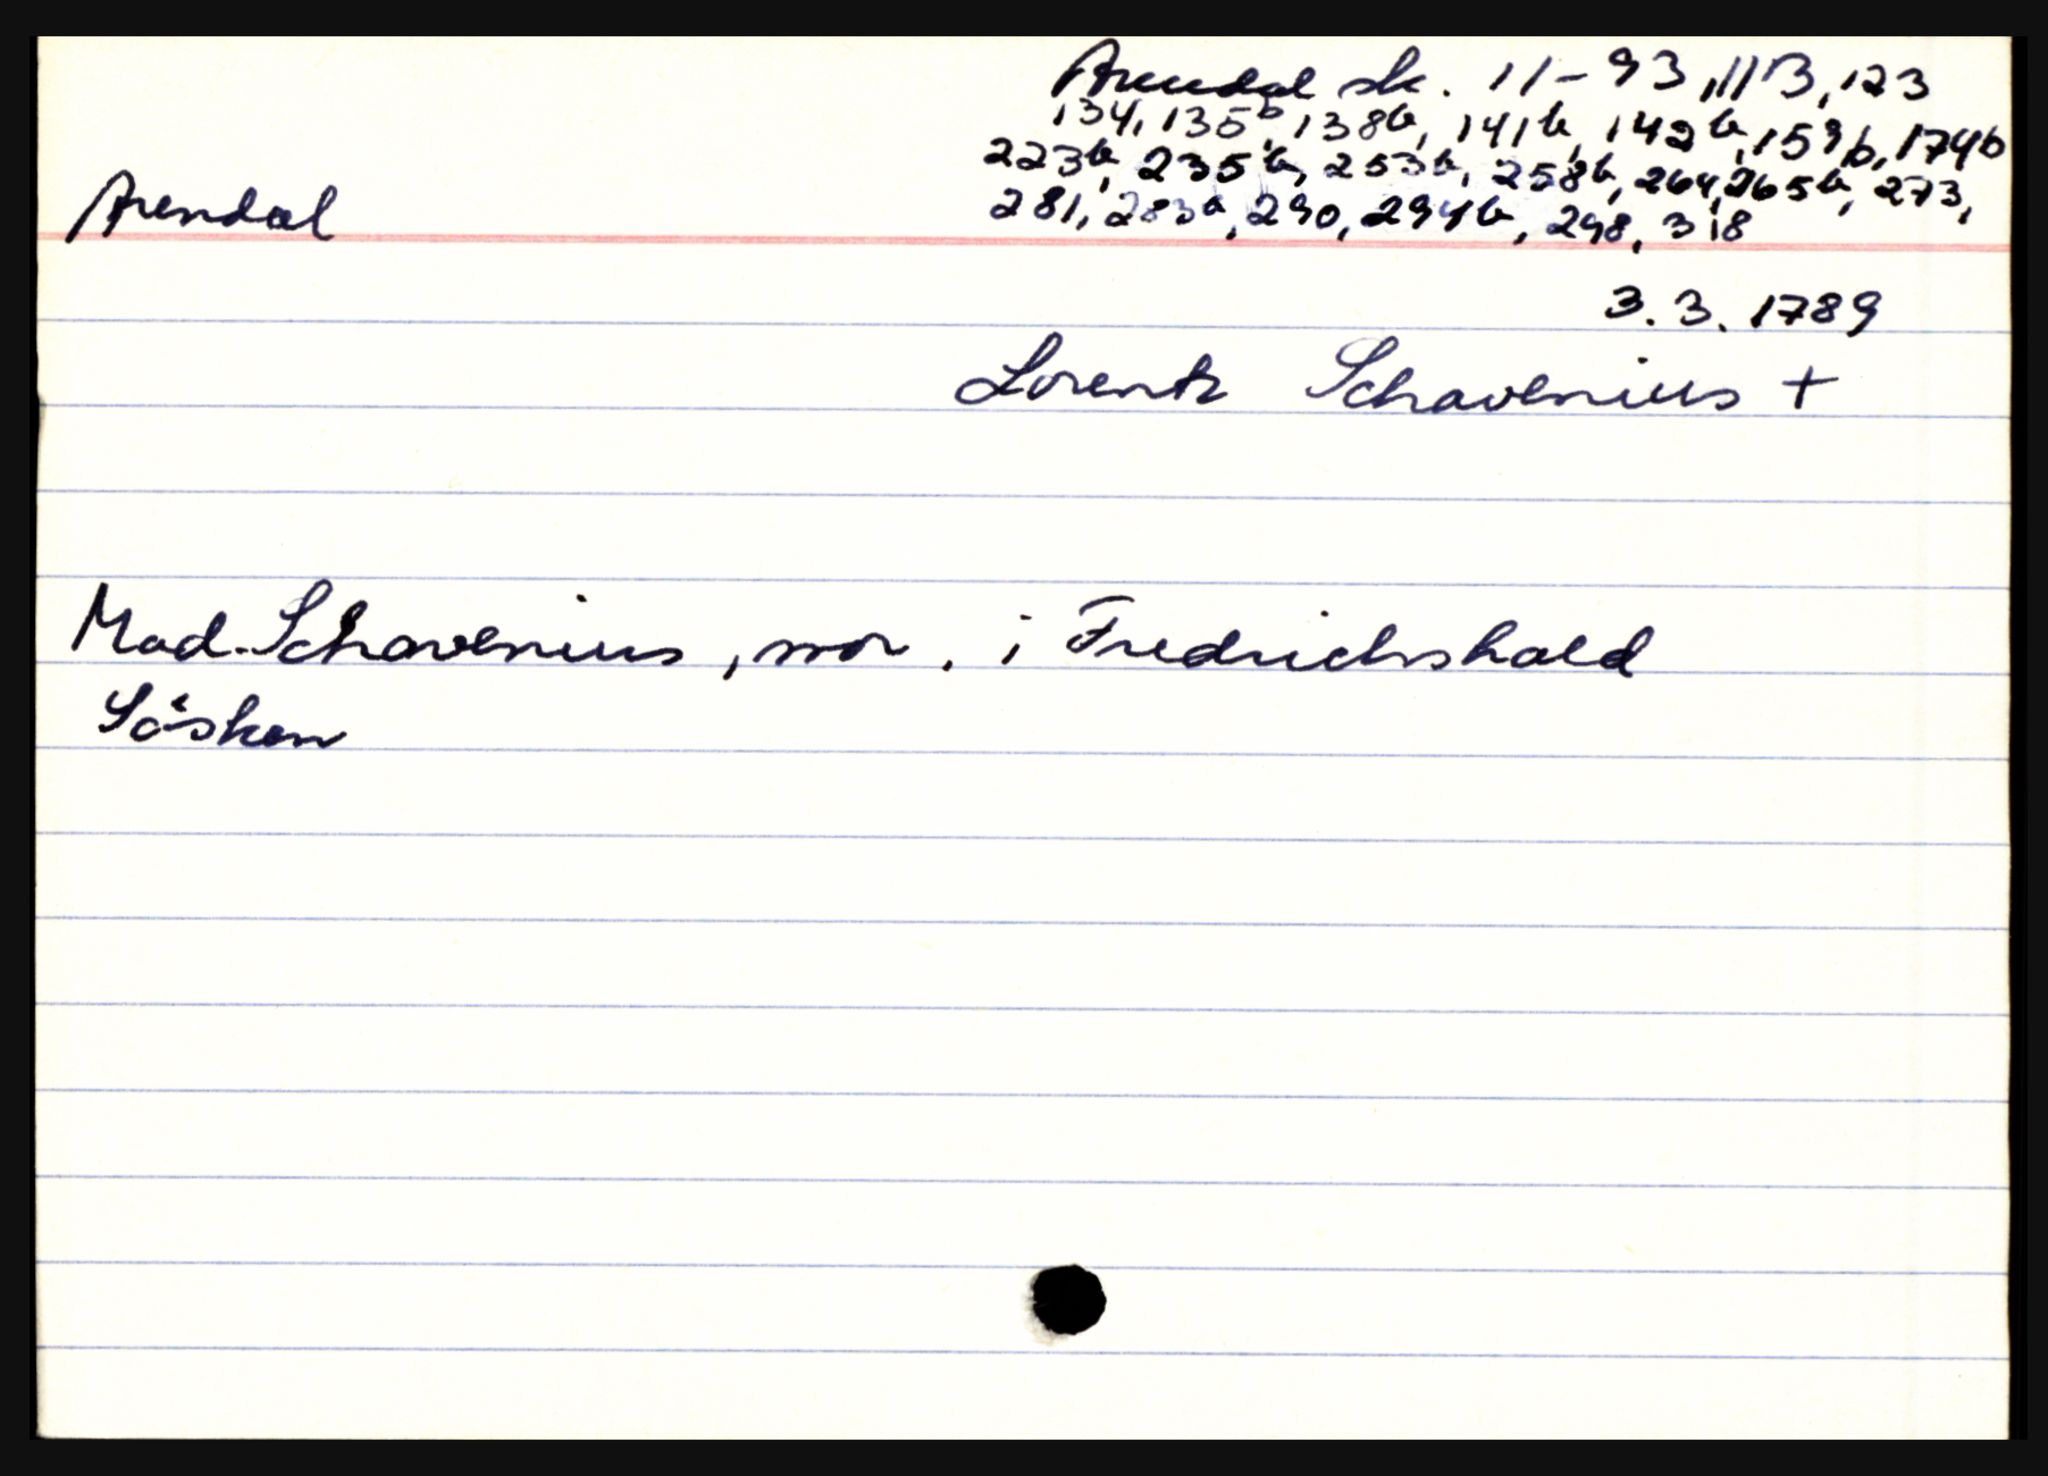 Arendal sk. 11-93, 113, 123
134, 135b, 138b, 141b, 142b, 159b, 174b
223b, 235b, 253b, 258b, 264, 265b, 273,
Arendal
281, 283a, 290, 294b, 298, 318
3.3.1789
Lorentz Schavenius +
Mad. Schavenius, mor, i Fredrichshald
Søsken